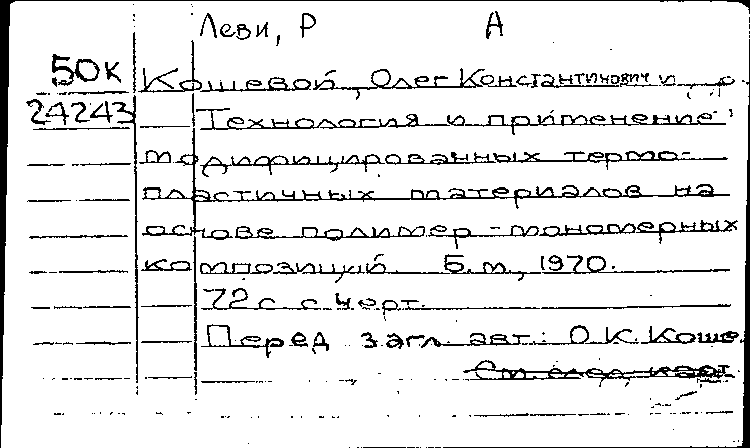 Леви, Р A
50к Кошевой, Олег Константинович и др.
24243 Технология и применение
модифицированных термо-
пластичных материалов на
основе полимер-мономерных
композиций. Б.м., 1970.
72 с. с черт.
Перед загл. авт.: О.К. Коше
См. след. карт.